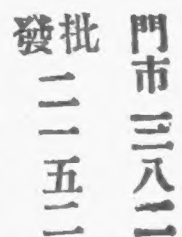 門市三八二
批發二一五二